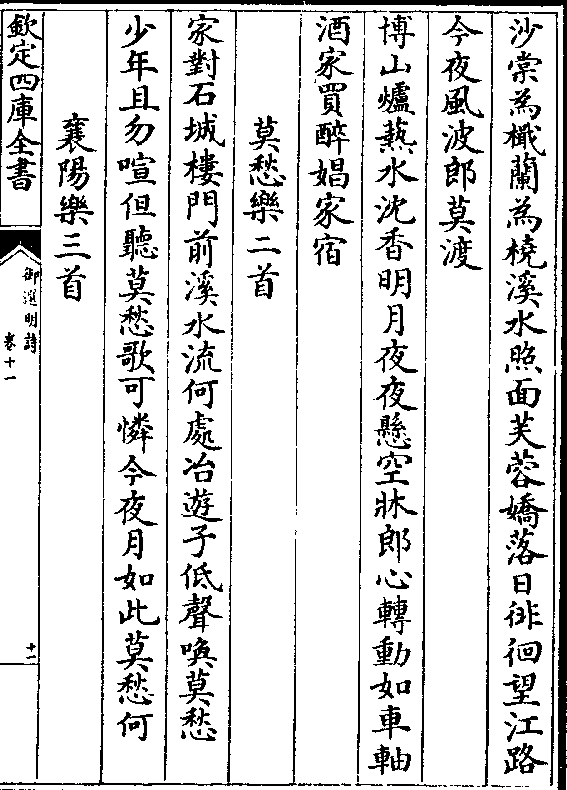 沙棠為檝蘭為橈溪水照面芙蓉嬌落日徘徊望江路
今夜風波郎莫渡
博山爐爇水沈香明月夜夜懸空牀郎心轉動如車軸
酒家買醉娼家宿
莫愁樂二首
家對石城樓門前溪水流何處冶遊子低聲喚莫愁
少年且勿喧但聽莫愁歌可憐今夜月如此莫愁何
襄陽樂三首
欽定四庫全書
御選明詩
卷十一
十一